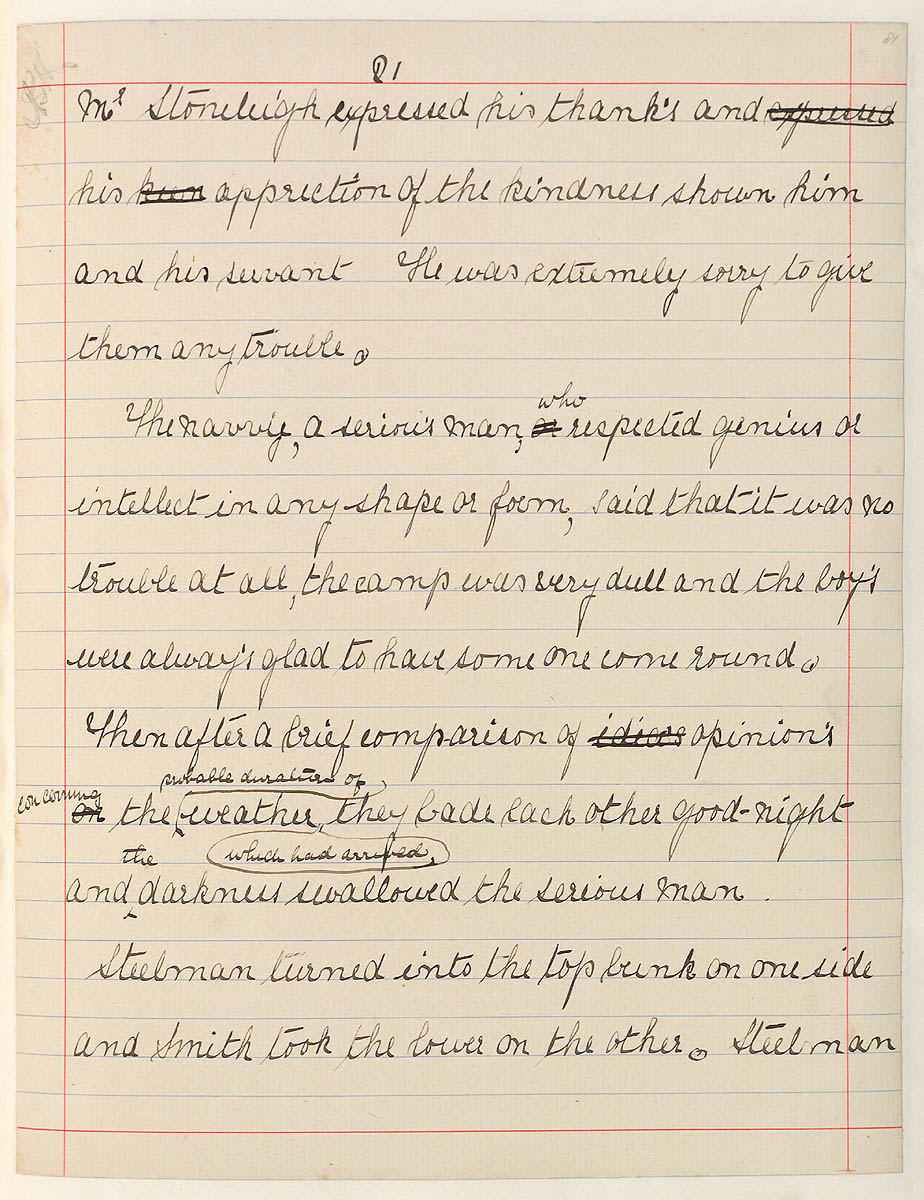 81
81
Mr Stoneleigh expressed his thank's and expressed
his keen apprection of the kindness shown him
and his servant He was extremely sorry to give
them any trouble.
who
The navvie, a serious man, or respected genius or
intellect in any shape or form, said that it was no
trouble at all, the camp was very dull and the boy's
were alway's glad to have some one come round.
Then after a brief comparison of idices opinion's
probable duration of
concerning
on the weather, they bade each other good-night
the which had arrived,
and darkness swallowed the serious man.
Steelman turned into the top bunk on one side
and Smith took the lower on the other. Steelman